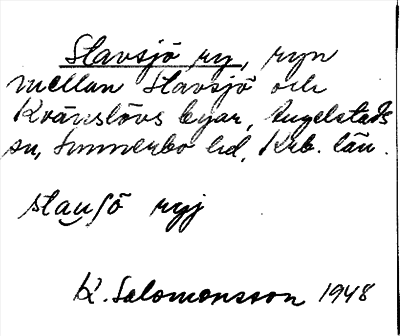 Slavsjö ry, ryn
mellan Slavsjö och
Kvänslövs byar, Angelstads
sn, Sunnerbo hd, Krb. län.
slauʃö ryj
K. Salomonsson 1948